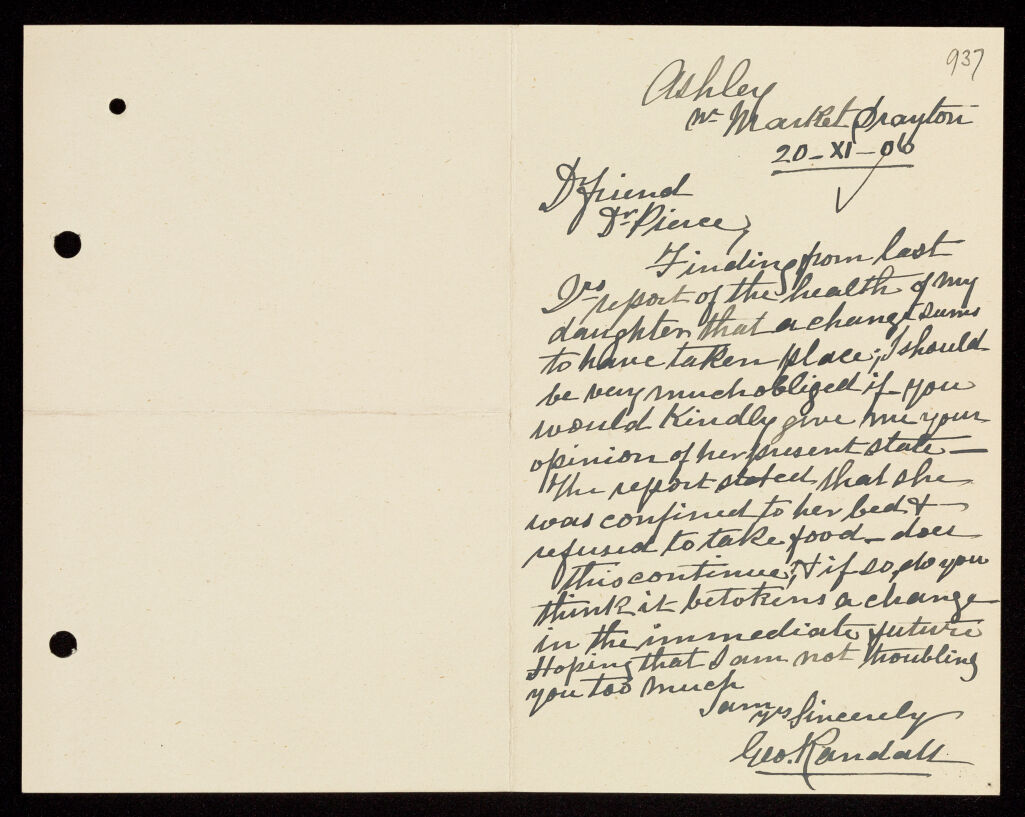 937
Ashley
Nr Market Drayton
20-XI-06
Dr friend
Dr Pierce,
Finding from last
Drs report of the health of my
daughter that a change seems
to have taken place; I should
be very much obliged if you
would Kindly give me your
opinion of her present state —
The report stated that she
was confined to her bed &
refused to take food — does
this continue, & if so, do you
think it betokens a change
in the immediate future
Hoping that I am not troubling
you too much
I am
yrs Sincerely
Geo. Randall